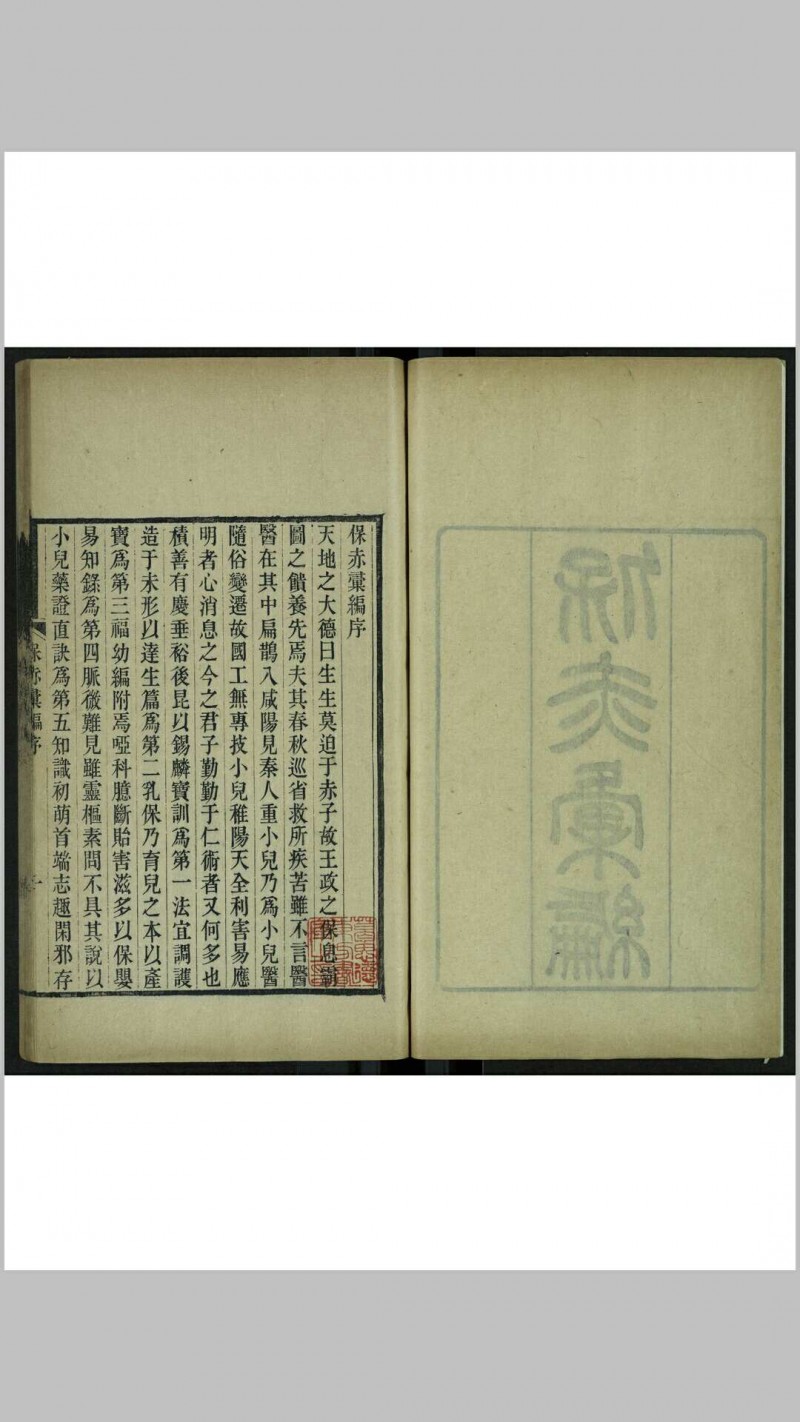 保赤彙編
保赤彙編序
天地之大德曰生生莫迫于赤子故王政之保息霸
圖之饋養先焉夫其春秋巡省救所疾苦雖不言醫
醫在其中扁鵲入咸陽見秦人重小兒乃爲小兒醫
隨俗變遷故國工無專技小兒稚陽天全利害易應
明者心消息之今之君子勤勤于仁術者又何多也
積善有慶垂裕後昆以錫麟寶訓爲第一法宜調護
造于未形以達生篇爲第二乳保乃育兒之本以產
寶爲第三福幼編附焉啞科臆斷貽害滋多以保嬰
易知錄爲第四脈微難見雖靈樞素問不具其說以
小兒藥證直訣爲第五知識初萌首端志趣閑邪存
保赤彙編序
一